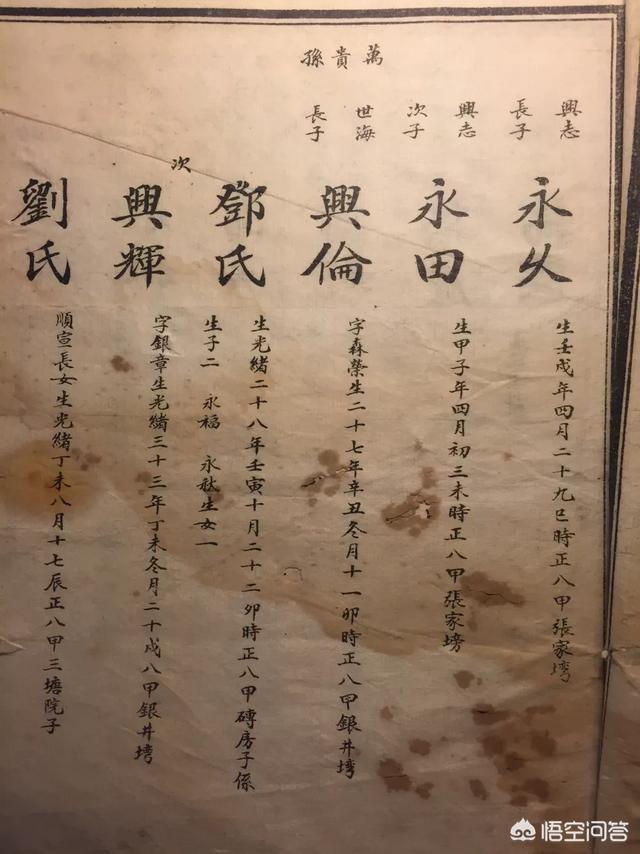 萬貴孫
興志
長子
永久
生壬戌年四月二十九巳時正八甲張家塆
興志
次子
永田
生甲子年四月初三未時正八甲張家塝
世海
長子
興倫
字森榮生二十七年辛丑冬月十一卯時正八甲銀井塆
鄧氏
生光緒二十八年壬寅十月二十二卯時正八甲磚房子係
生子二 永福 永秋生女一
次
興輝
字銀章生光緒三十三年丁未冬月二十戌八甲銀井塆
劉氏
順宣長女生光緒丁未八月十七辰正八甲三塘院子
悟空问答